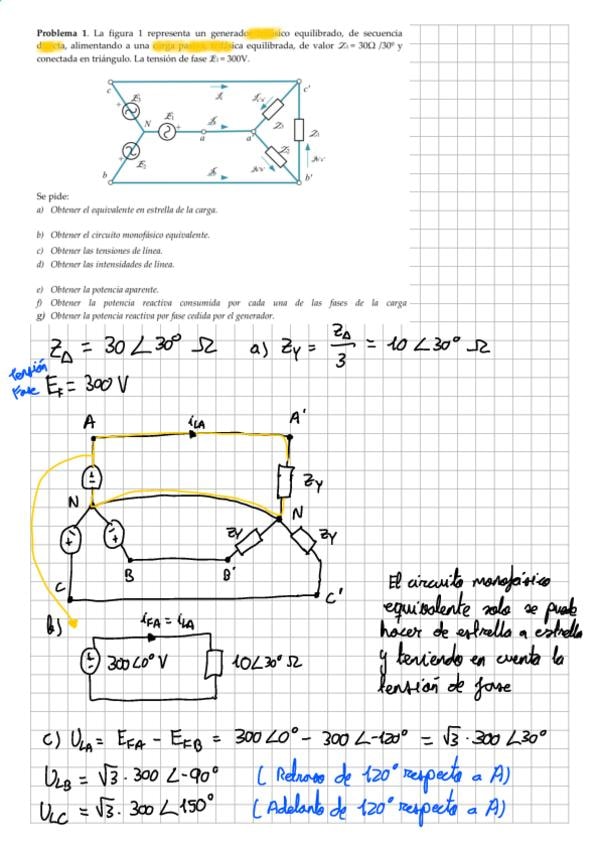 Problema 1. La figura 1 representa un generador trifásico equilibrado, de secuencia
directa, alimentando a una carga pasiva, trifásica equilibrada, de valor Z₁= 30Ω /30º y
conectada en triángulo. La tensión de fase E₁= 300V.
c
c'
N
a
a'
b
b'
Se pide:
a) Obtener el equivalente en estrella de la carga.
b) Obtener el circuito monofásico equivalente.
c) Obtener las tensiones de línea.
d) Obtener las intensidades de línea.
e) Obtener la potencia aparente.
f) Obtener la potencia reactiva consumida por cada una de las fases de la carga
g) Obtener la potencia reactiva por fase cedida por el generador.
Z_Δ = 30 ∠30° Ω a) Z_Y = Z_Δ / 3 = 10 ∠30° Ω
tensión
Fase E_F = 300 V
A i_LA A'
Z_Y
N N
Z_Y Z_Y
B B'
C C'
b) i_FA = i_LA
300∠0° V 10∠30° Ω
El circuito monofásico
equivalente solo se puede
hacer de estrella a estrella
y teniendo en cuenta la
tensión de fase
c) U_LA = E_FA - E_FB = 300∠0° - 300∠-120° = √3 · 300∠30°
U_LB = √3 · 300 ∠-90° (Retraso de 120° respecto a A)
U_LC = √3 · 300 ∠150° (Adelanto de 120° respecto a A)